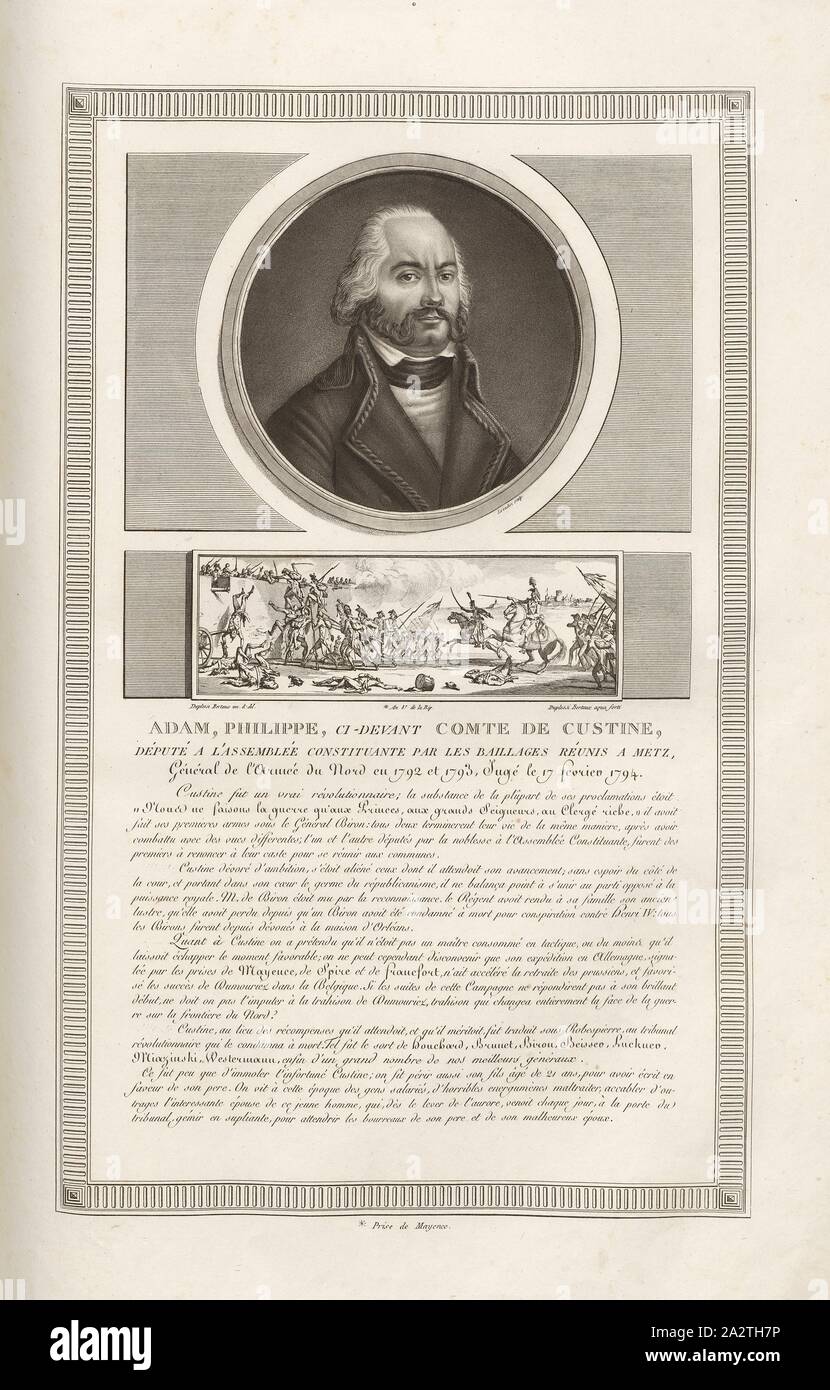 Levachez Sculp.
Duplessi Bertaux inv. & del.
* An Ier de la Rep.
Duplessi Bertaux aqua forti
ADAM, PHILIPPE, CI-DEVANT COMTE DE CUSTINE,
DÉPUTÉ A L'ASSEMBLÉE CONSTITUANTE PAR LES BAILLAGES RÉUNIS A METZ,
Général de l'Armée du Nord en 1792 et 1793, Jugé le 17 février 1794.
Custine fut un vrai révolutionnaire; la substance de la plûpart de ses proclamations étoit
" Nous ne faisons la guerre qu'aux Princes, aux grands Seigneurs, au Clergé riche, " il avoit
fait ses premieres armes sous le Général Biron: tous deux terminerent leur vie de la même maniere, après avoir
combattu avec des vues differentes; l'un et l'autre députés par la noblesse à l'Assemblée Constituante, furent des
premiers à renoncer à leur caste pour se réunir aux communes.
Custine dévoré d'ambition, s'étoit aliéné ceux dont il attendoit son avancement; sans espoir du côté de
la cour, et portant dans son cœur le germe du républicanisme, il ne balança point à s'unir au parti opposé à la
puissance royale. M. de Biron étoit mu par la reconnoissance. le Régent avoit rendu à sa famille son ancien
lustre, qu'elle avoit perdu depuis qu'un Biron avoit été condamné à mort pour conspiration contre Henri IV: tous
les Birons furent depuis dévoués à la maison d'Orléans.
Quant à Custine on a prétendu qu'il n'étoit pas un maître consommé en tactique, ou du moins qu'il
laissoit échapper le moment favorable; on ne peut cependant disconvenir que son expédition en Allemagne, signa-
lée par les prises de Mayence, de Spire et de francfort, n'ait accéléré la retraite des prussiens, et favori-
sé les succès de Dumouriez dans la Belgique. Si les suites de cette Campagne ne répondirent pas à son brillant
début, ne doit on pas l'imputer à la trahison de Dumouriez, trahison qui changea entièrement la face de la guer-
re sur la frontière du Nord?
Custine, au lieu des récompenses qu'il attendoit, et qu'il méritoit, fut traduit sous Robespierre, au tribunal
révolutionnaire qui le condamna à mort. Tel fut le sort de Houchard, Brunet, Biron, Beisser, Luckner,
Miazinski, Westermann, enfin d'un grand nombre de nos meilleurs généraux.
Ce fut peu que d'immoler l'infortuné Custine; on fit périr aussi son fils âgé de 21 ans, pour avoir écrit en
faveur de son pere. On vit à cette époque des gens salariés, d'horribles energumènes maltraiter, accabler d'ou-
trages l'interessante épouse de ce jeune homme, qui, dès le lever de l'aurore, venoit chaque jour, à la porte du
tribunal, gémir en supliante, pour attendrir les bourreaux de son pere et de son malheureux époux.
* Prise de Mayence.
alamy
Image ID: 2A2TH7P
www.alamy.com